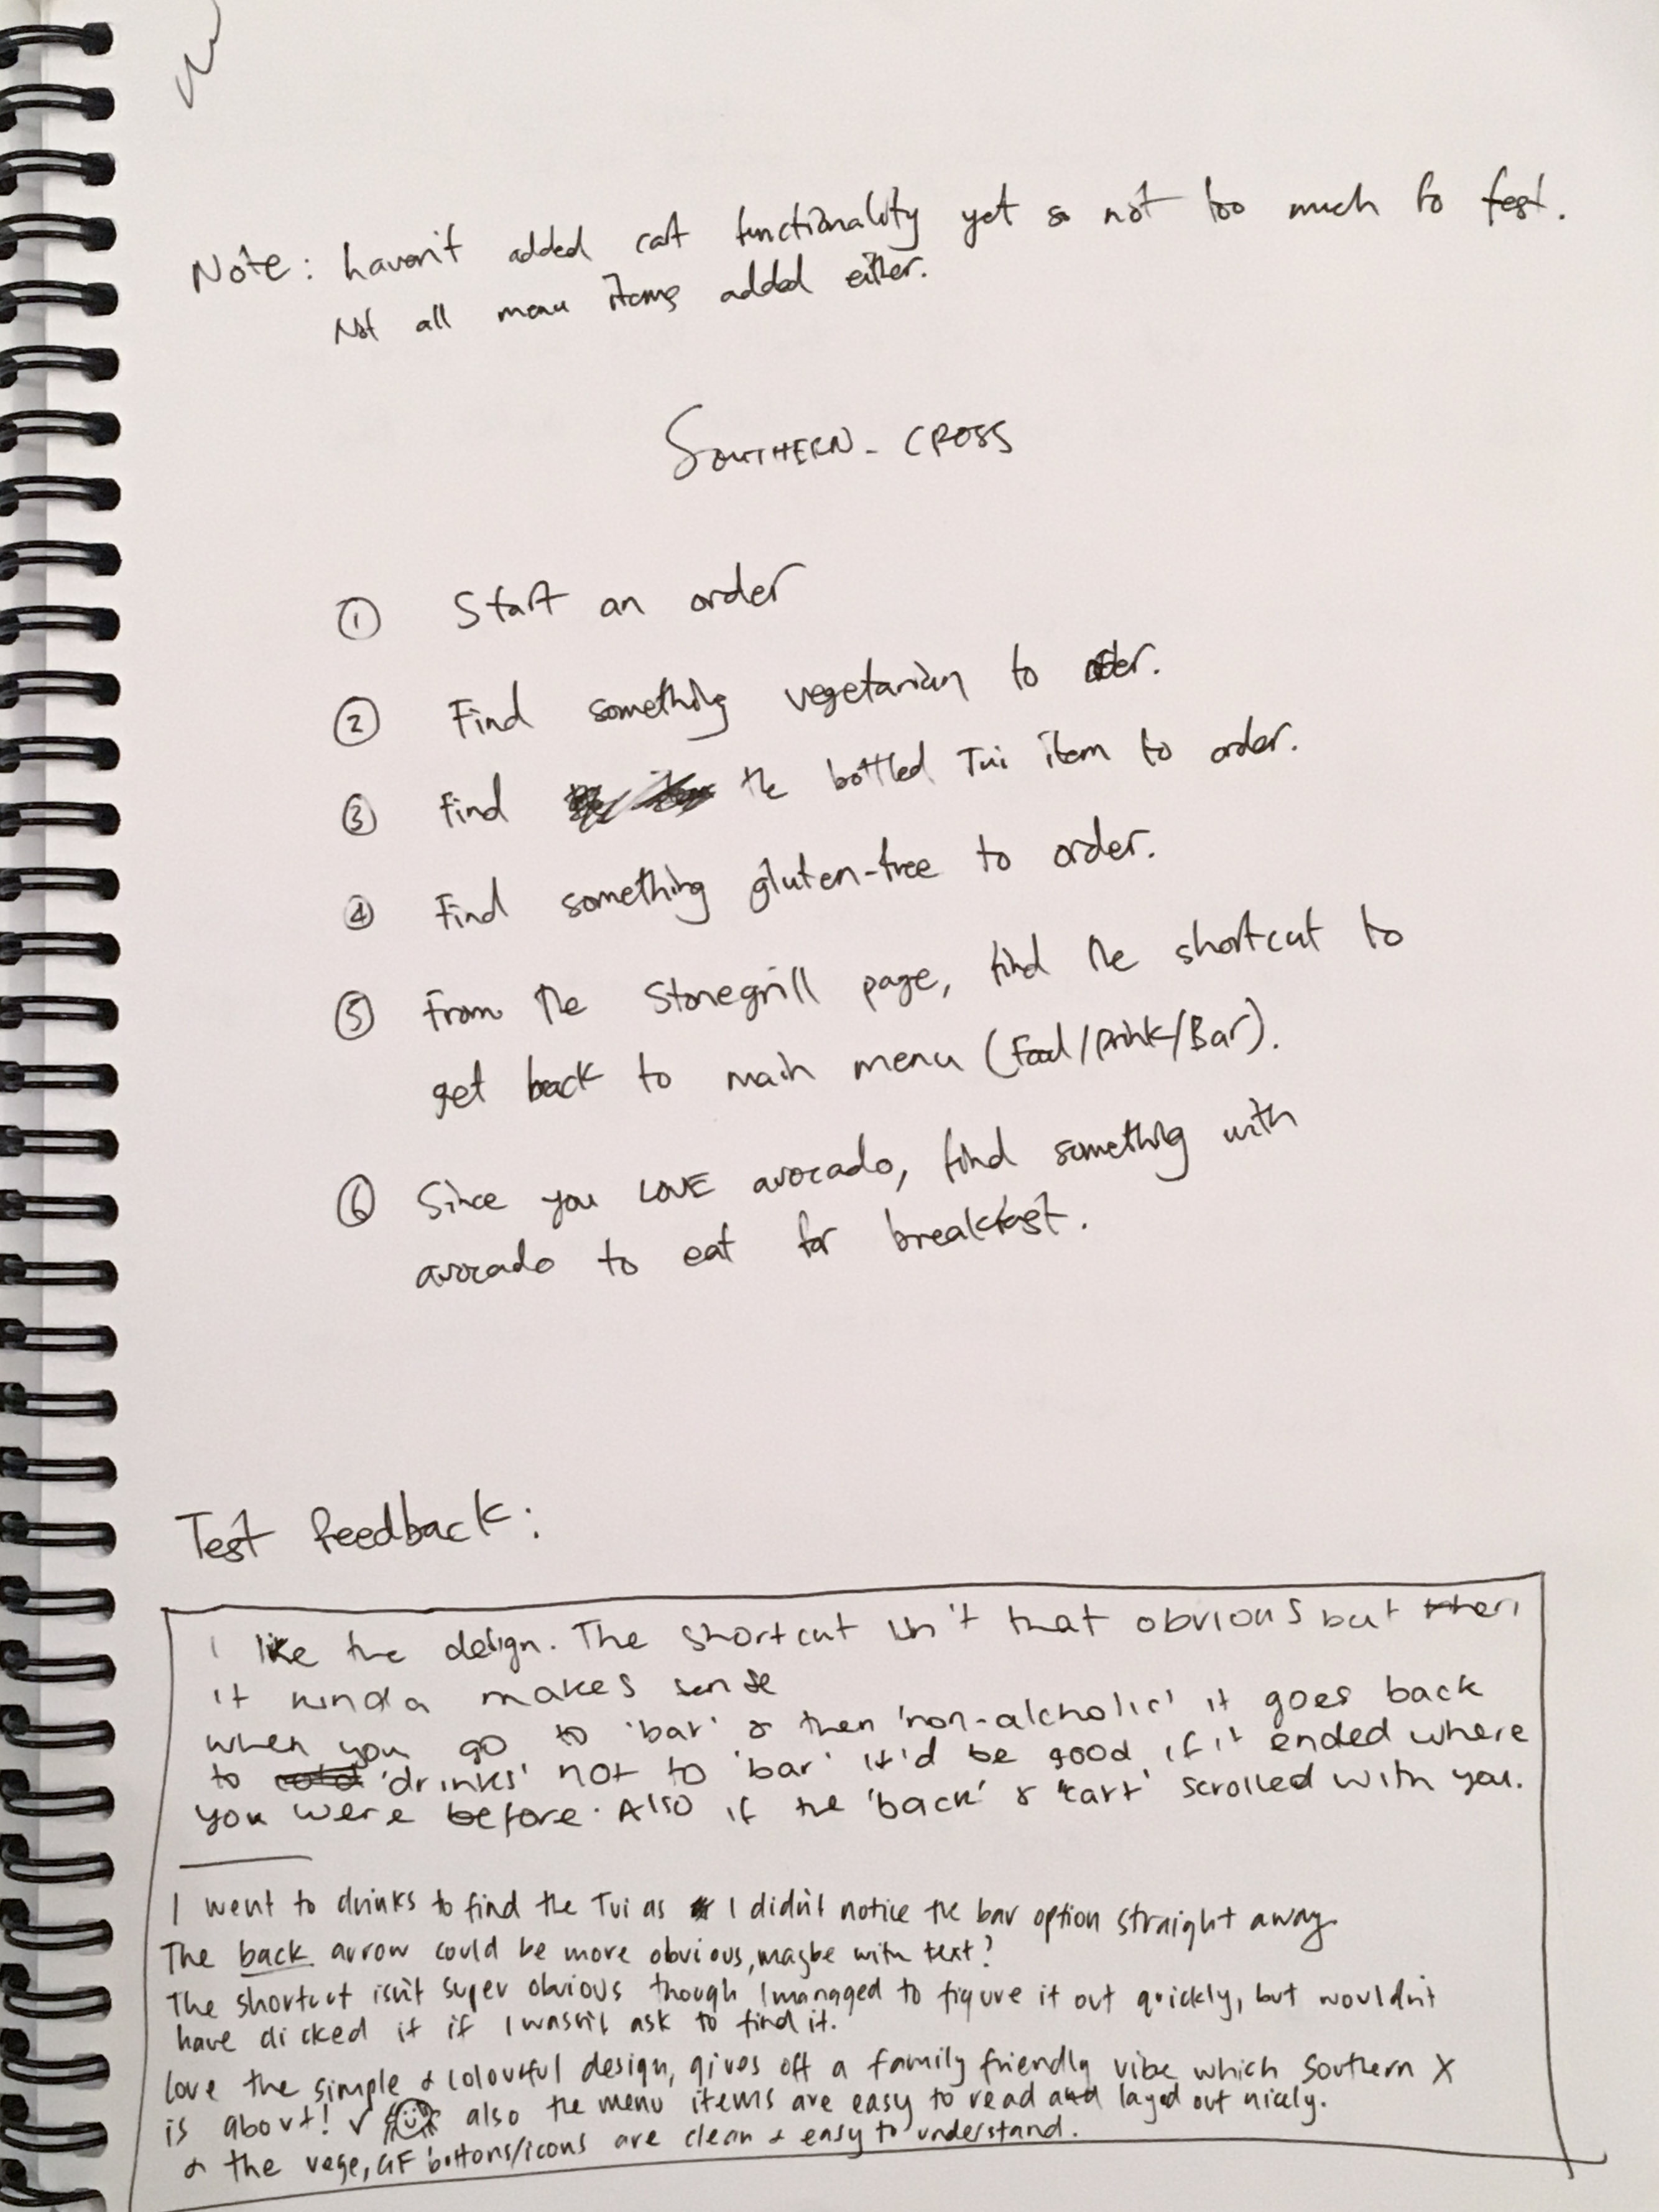 Note: haven't added cart functionality yet so not too much to test.
Not all menu items added either.
SOUTHERN - CROSS
① Start an order
② Find something vegetarian to order.
③ Find the bottled Tui item to order.
④ Find something gluten-free to order.
⑤ From the Stonegrill page, find the shortcut to
get back to main menu (Food/Drink/Bar).
⑥ Since you LOVE avocado, find something with
avocado to eat for breakfast.
Test feedback:
I like the design. The shortcut isn't that obvious but then
it kinda makes sense
when you go to 'bar' & then 'non-alcholic' it goes back
to 'drinks' not to 'bar' it'd be good if it ended where
you were before. Also if the 'back' & 'cart' scrolled with you.
I went to drinks to find the Tui as I didn't notice the bar option straight away.
The back arrow could be more obvious, maybe with text?
The shortcut isn't super obvious though I managed to figure it out quickly, but wouldn't
have clicked it if I wasn't ask to find it.
Love the simple & colourful design, gives off a family friendly vibe which Southern X
is about! ✓ also the menu items are easy to read and layed out nicely.
& the vege, GF buttons/icons are clean & easy to understand.